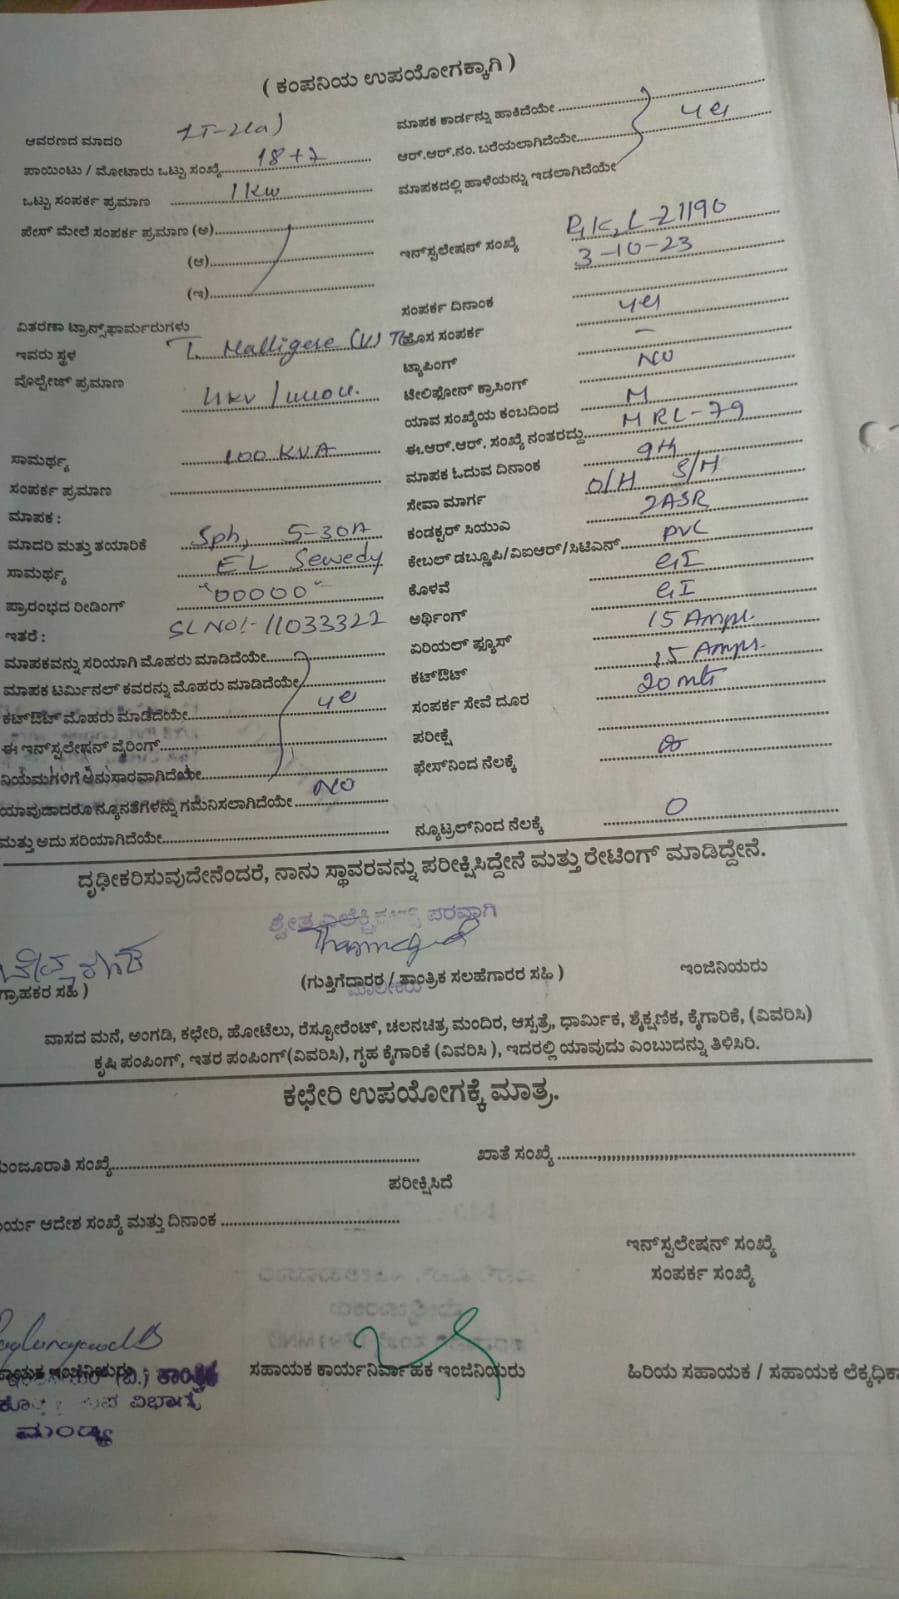 ( ಕಂಪನಿಯ ಉಪಯೋಗಕ್ಕಾಗಿ )
ಆವರಣದ ಮಾದರಿ LT-2(a)
ಪಾಯಿಂಟು / ಮೋಟಾರು ಒಟ್ಟು ಸಂಖ್ಯೆ 18+2
ಒಟ್ಟು ಸಂಪರ್ಕ ಪ್ರಮಾಣ 1 KW
ಪೇಸ್ ಮೇಲೆ ಸಂಪರ್ಕ ಪ್ರಮಾಣ (ಅ)
(ಆ)
(ಇ)
ವಿತರಣಾ ಟ್ರಾನ್ಸ್‌ಫಾರ್ಮರುಗಳು
ಇವರು ಸ್ಥಳ T. Malligere (V)
ವೊಲ್ಟೇಜ್ ಪ್ರಮಾಣ 11KV /
ಸಾಮರ್ಥ್ಯ 100 KVA
ಸಂಪರ್ಕ ಪ್ರಮಾಣ
ಮಾಪಕ :
ಮಾದರಿ ಮತ್ತು ತಯಾರಿಕೆ Sph, 5-30A
ಸಾಮರ್ಥ್ಯ EL Sewedy
ಪ್ರಾರಂಭದ ರೀಡಿಂಗ್ "00000"
ಇತರೆ : SL NO:- 11033322
ಮಾಪಕವನ್ನು ಸರಿಯಾಗಿ ಮೊಹರು ಮಾಡಿದೆಯೇ
ಮಾಪಕ ಟರ್ಮಿನಲ್ ಕವರನ್ನು ಮೊಹರು ಮಾಡಿದೆಯೇ
ಕಟ್‌ಔಟ್ ಮೊಹರು ಮಾಡಿದೆಯೇ yes
ಈ ಇನ್‌ಸ್ಟಲೇಷನ್ ವೈರಿಂಗ್
ನಿಯಮಗಳಿಗೆ ಅನುಸಾರವಾಗಿದೆಯೇ
ಯಾವುದಾದರೂ ನ್ಯೂನತೆಗಳನ್ನು ಗಮನಿಸಲಾಗಿದೆಯೇ NO
ಮತ್ತು ಅದು ಸರಿಯಾಗಿದೆಯೇ
ಮಾಪಕ ಕಾರ್ಡನ್ನು ಹಾಕಿದೆಯೇ
ಆರ್.ಆರ್.ನಂ. ಬರೆಯಲಾಗಿದೆಯೇ yes
ಮಾಪಕದಲ್ಲಿ ಹಾಳೆಯನ್ನು ಇಡಲಾಗಿದೆಯೇ
ಇನ್‌ಸ್ಟಲೇಷನ್ ಸಂಖ್ಯೆ L-21190
3-10-23
ಸಂಪರ್ಕ ದಿನಾಂಕ
ಹೊಸ ಸಂಪರ್ಕ yes
ಟ್ಯಾಪಿಂಗ್ –
ಟೇಲಿಫೋನ್ ಕ್ರಾಸಿಂಗ್ NO
ಯಾವ ಸಂಖ್ಯೆಯ ಕಂಬದಿಂದ M
ಈ.ಆರ್.ಆರ್. ಸಂಖ್ಯೆ ನಂತರದ್ದು MRL-79
ಮಾಪಕ ಓದುವ ದಿನಾಂಕ 9th
ಸೇವಾ ಮಾರ್ಗ O/H S/H
ಕಂಡಕ್ಟರ್ ಸಿಯುಎ 2ASR
ಕೇಬಲ್ ಡಬ್ಲೂಪಿ/ವಿಐಆರ್/ಸಿಟಿಎನ್ PVC
ಕೊಳವೆ GI
ಅರ್ಥಿಂಗ್ GI
ಏರಿಯಲ್ ಫ್ಯೂಸ್ 15 Amps.
ಕಟ್‌ಔಟ್ 15 Amps.
ಸಂಪರ್ಕ ಸೇವೆ ದೂರ 20 mts
ಪರೀಕ್ಷೆ
ಫೇಸ್‌ನಿಂದ ನೆಲಕ್ಕೆ
ನ್ಯೂಟ್ರಲ್‌ನಿಂದ ನೆಲಕ್ಕೆ 0
ದೃಢೀಕರಿಸುವುದೇನೆಂದರೆ, ನಾನು ಸ್ಥಾವರವನ್ನು ಪರೀಕ್ಷಿಸಿದ್ದೇನೆ ಮತ್ತು ರೇಟಿಂಗ್ ಮಾಡಿದ್ದೇನೆ.
ಶ್ವೇತ ಎಲೆಕ್ಟ್ರಿಕಲ್ಸ್ ಪರವಾಗಿ
ಗ್ರಾಹಕರ ಸಹಿ )
(ಗುತ್ತಿಗೆದಾರರ / ತಾಂತ್ರಿಕ ಸಲಹೆಗಾರರ ಸಹಿ )
ಇಂಜಿನಿಯರು
ಮಾಲೀಕರು
ವಾಸದ ಮನೆ, ಅಂಗಡಿ, ಕಛೇರಿ, ಹೋಟೆಲು, ರೆಸ್ಟೋರೆಂಟ್, ಚಲನಚಿತ್ರ ಮಂದಿರ, ಆಸ್ಪತ್ರೆ, ಧಾರ್ಮಿಕ, ಶೈಕ್ಷಣಿಕ, ಕೈಗಾರಿಕೆ, (ವಿವರಿಸಿ)
ಕೃಷಿ ಪಂಪಿಂಗ್, ಇತರ ಪಂಪಿಂಗ್(ವಿವರಿಸಿ), ಗೃಹ ಕೈಗಾರಿಕೆ (ವಿವರಿಸಿ ), ಇದರಲ್ಲಿ ಯಾವುದು ಎಂಬುದನ್ನು ತಿಳಿಸಿರಿ.
ಕಛೇರಿ ಉಪಯೋಗಕ್ಕೆ ಮಾತ್ರ.
ಮಂಜೂರಾತಿ ಸಂಖ್ಯೆ
ಖಾತೆ ಸಂಖ್ಯೆ
ಪರೀಕ್ಷಿಸಿದೆ
ಕಾರ್ಯ ಆದೇಶ ಸಂಖ್ಯೆ ಮತ್ತು ದಿನಾಂಕ
ಇನ್‌ಸ್ಟಲೇಷನ್ ಸಂಖ್ಯೆ
ಸಂಪರ್ಕ ಸಂಖ್ಯೆ
ಸಹಾಯಕ ಇಂಜಿನಿಯರು (ವಿ.) ತಾಂತ್ರಿಕ
ಸಹಾಯಕ ಕಾರ್ಯನಿರ್ವಾಹಕ ಇಂಜಿನಿಯರು
ಹಿರಿಯ ಸಹಾಯಕ / ಸಹಾಯಕ ಲೆಕ್ಕಧಿಕಾ
ವಿಭಾಗ
ಮಂಡ್ಯ